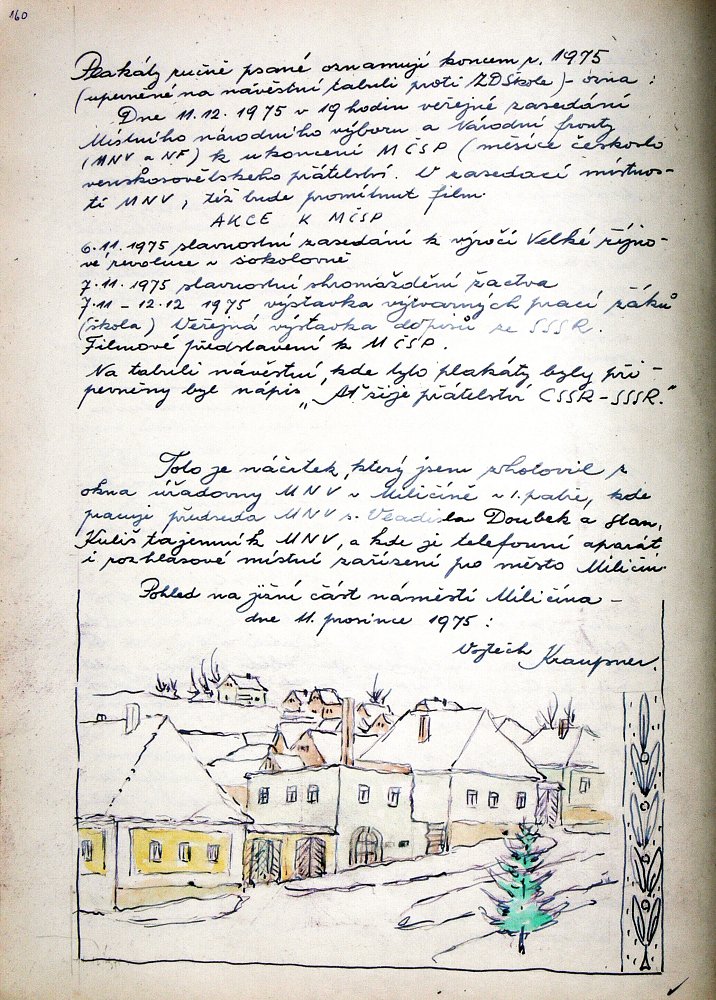 160
Plakáty ručně psané oznamují koncem r. 1975
(upevněné na návěstní tabuli proti ZDŠkole) - ozna :
Dne 11.12.1975 v 19 hodin veřejné zasedání
Místního národního výboru a Národní fronty
(MNV a NF) k ukončení MČSP (měsíce českoslo
venskosovětského přátelství. V zasedací místnos-
ti MNV, též bude promítnut film.
AKCE K MČSP
6.11.1975 slavnostní zasedání k výročí Velké říjno-
vé revoluce v sokolovně
7.11.1975 slavnostní shromáždění žactva
7.11 - 12.12 1975 výstavka výtvarných prací žáků
(škola) Veřejná výstavka dopisů ze SSSR.
Filmové představení k MČSP.
Na tabuli návěstní, kde tyto plakáty byly při -
pevněny byl nápis „Ať žije přátelství ČSSR - SSSR."
Toto je náčrtek, který jsem zhotovil z
okna úřadovny MNV v Miličíně v 1. patře, kde
pracuje předseda MNV s. Vladisla Doubek a Stan.
Kuliš tajemník MNV, a kde je telefonní aparát
i rozhlasové místní zařízení pro město Miličín.
Pohled na jižní část náměstí Miličína -
dne 11. prosince 1975 :
Vojtěch Kraupner.